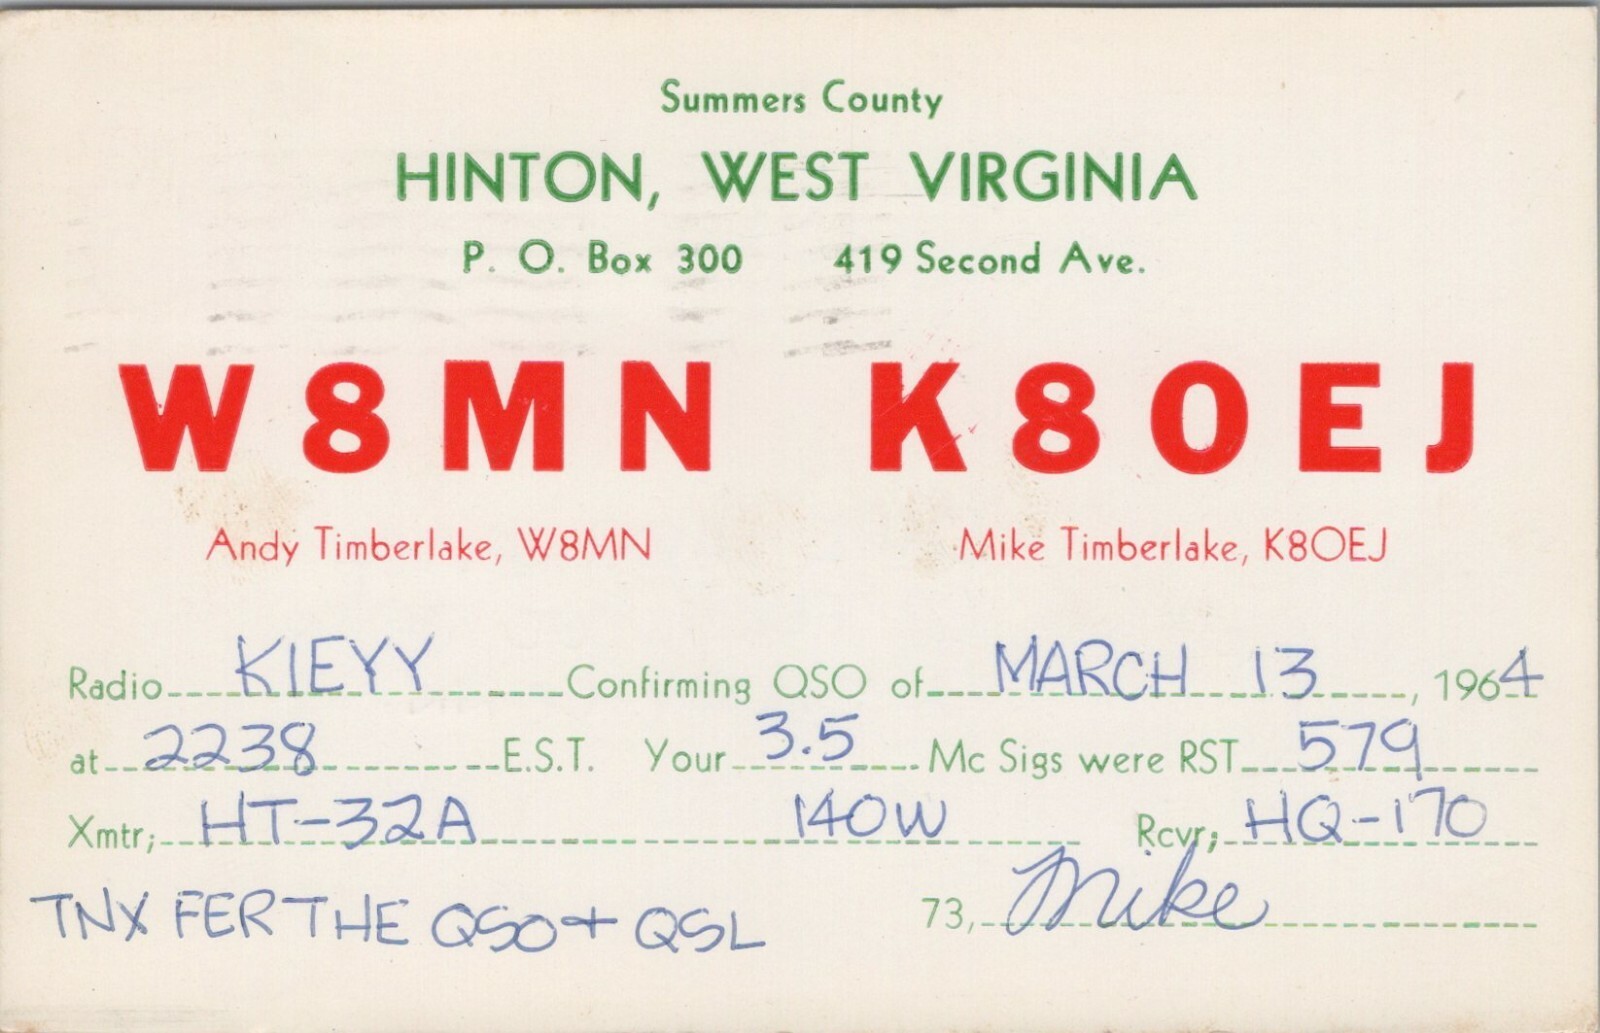 Summers County
HINTON, WEST VIRGINIA
P. O. Box 300 419 Second Ave.
W8MN K8OEJ
Andy Timberlake, W8MN Mike Timberlake, K8OEJ
Radio K1EYY Confirming QSO of MARCH 13, 1964
at 2238 E.S.T. Your 3.5 Mc Sigs were RST 579
Xmtr; HT-32A 140W Rcvr; HQ-170
TNX FER THE QSO + QSL 73, Mike